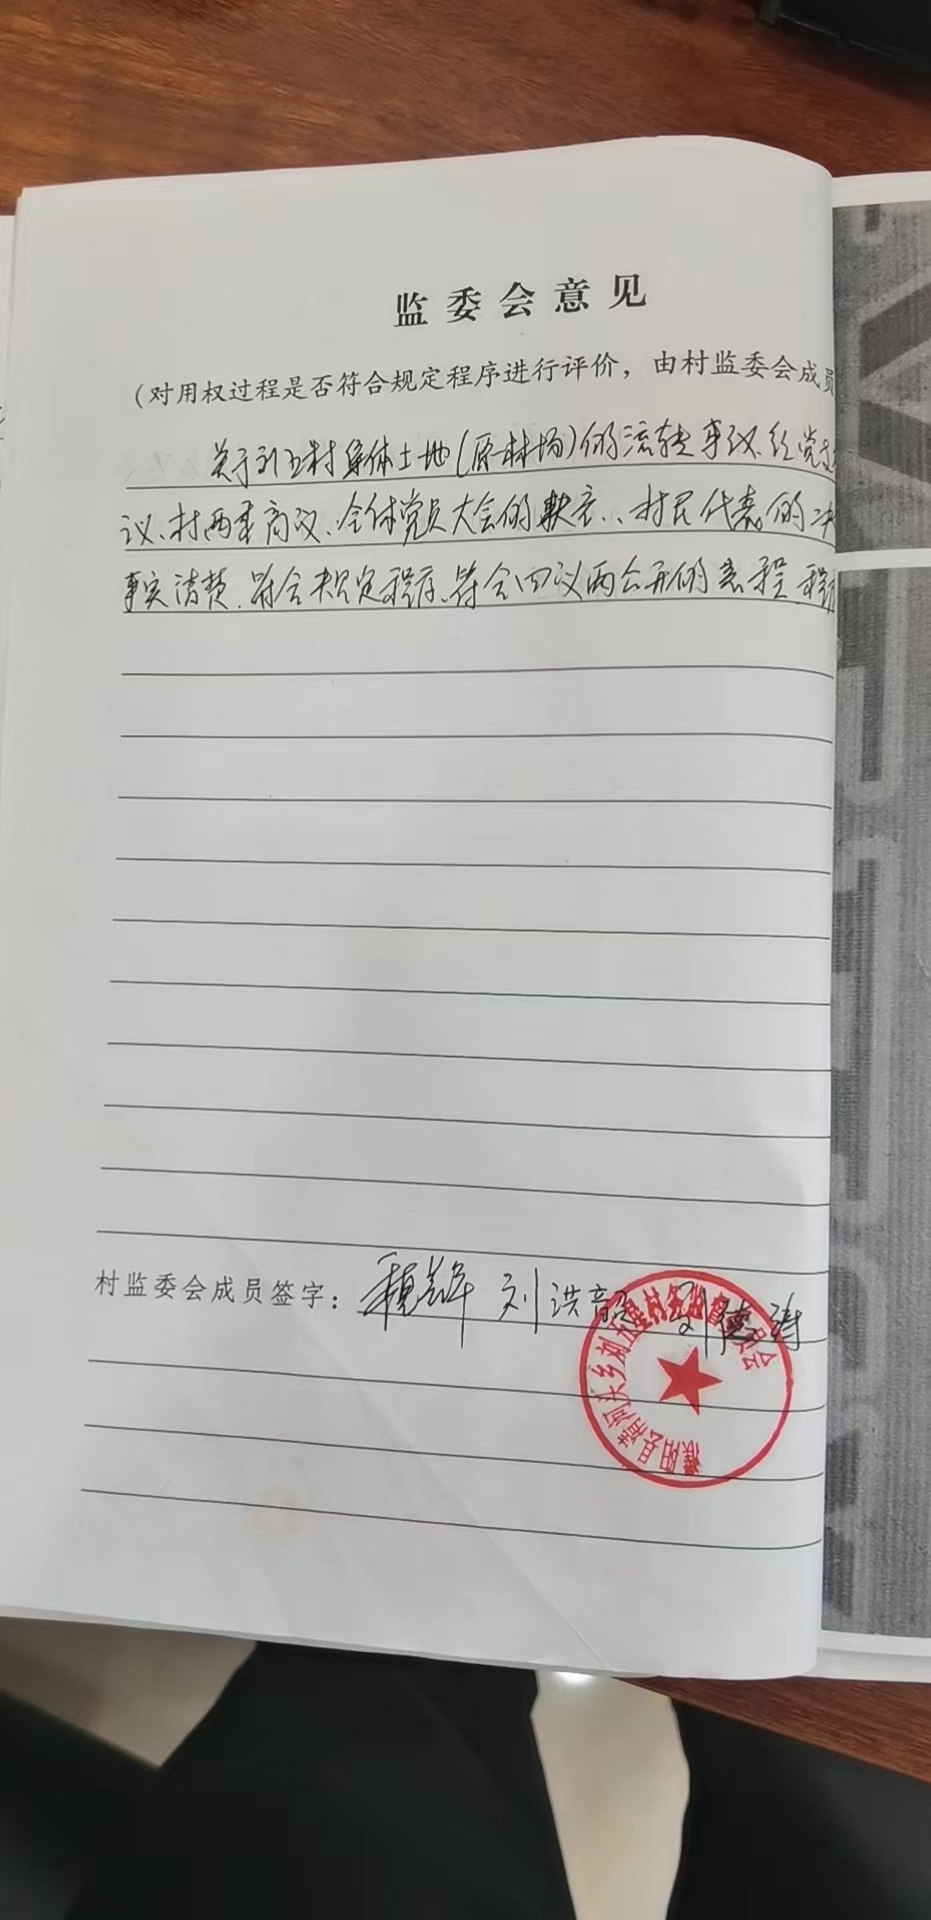 监委会意见
(对用权过程是否符合规定程序进行评价，由村监委会成员
关于刘五村集体土地(原林场)的流转事议、经党支
议、村两委商议、全体党员大会的、村民代表的决
事实清楚、符合规定程序、符合四议两公开的程
村监委会成员签字: 刘洪 刘德
濮阳县清河头乡刘五星村务监督委员会